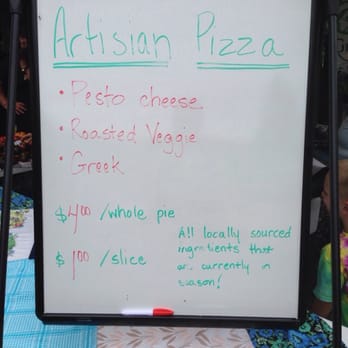 Artisian Pizza
• Pesto cheese
• Roasted Veggie
• Greek
$4.00 /whole pie
$1.00 /slice
All locally sourced
ingredients that
are currently in
season!